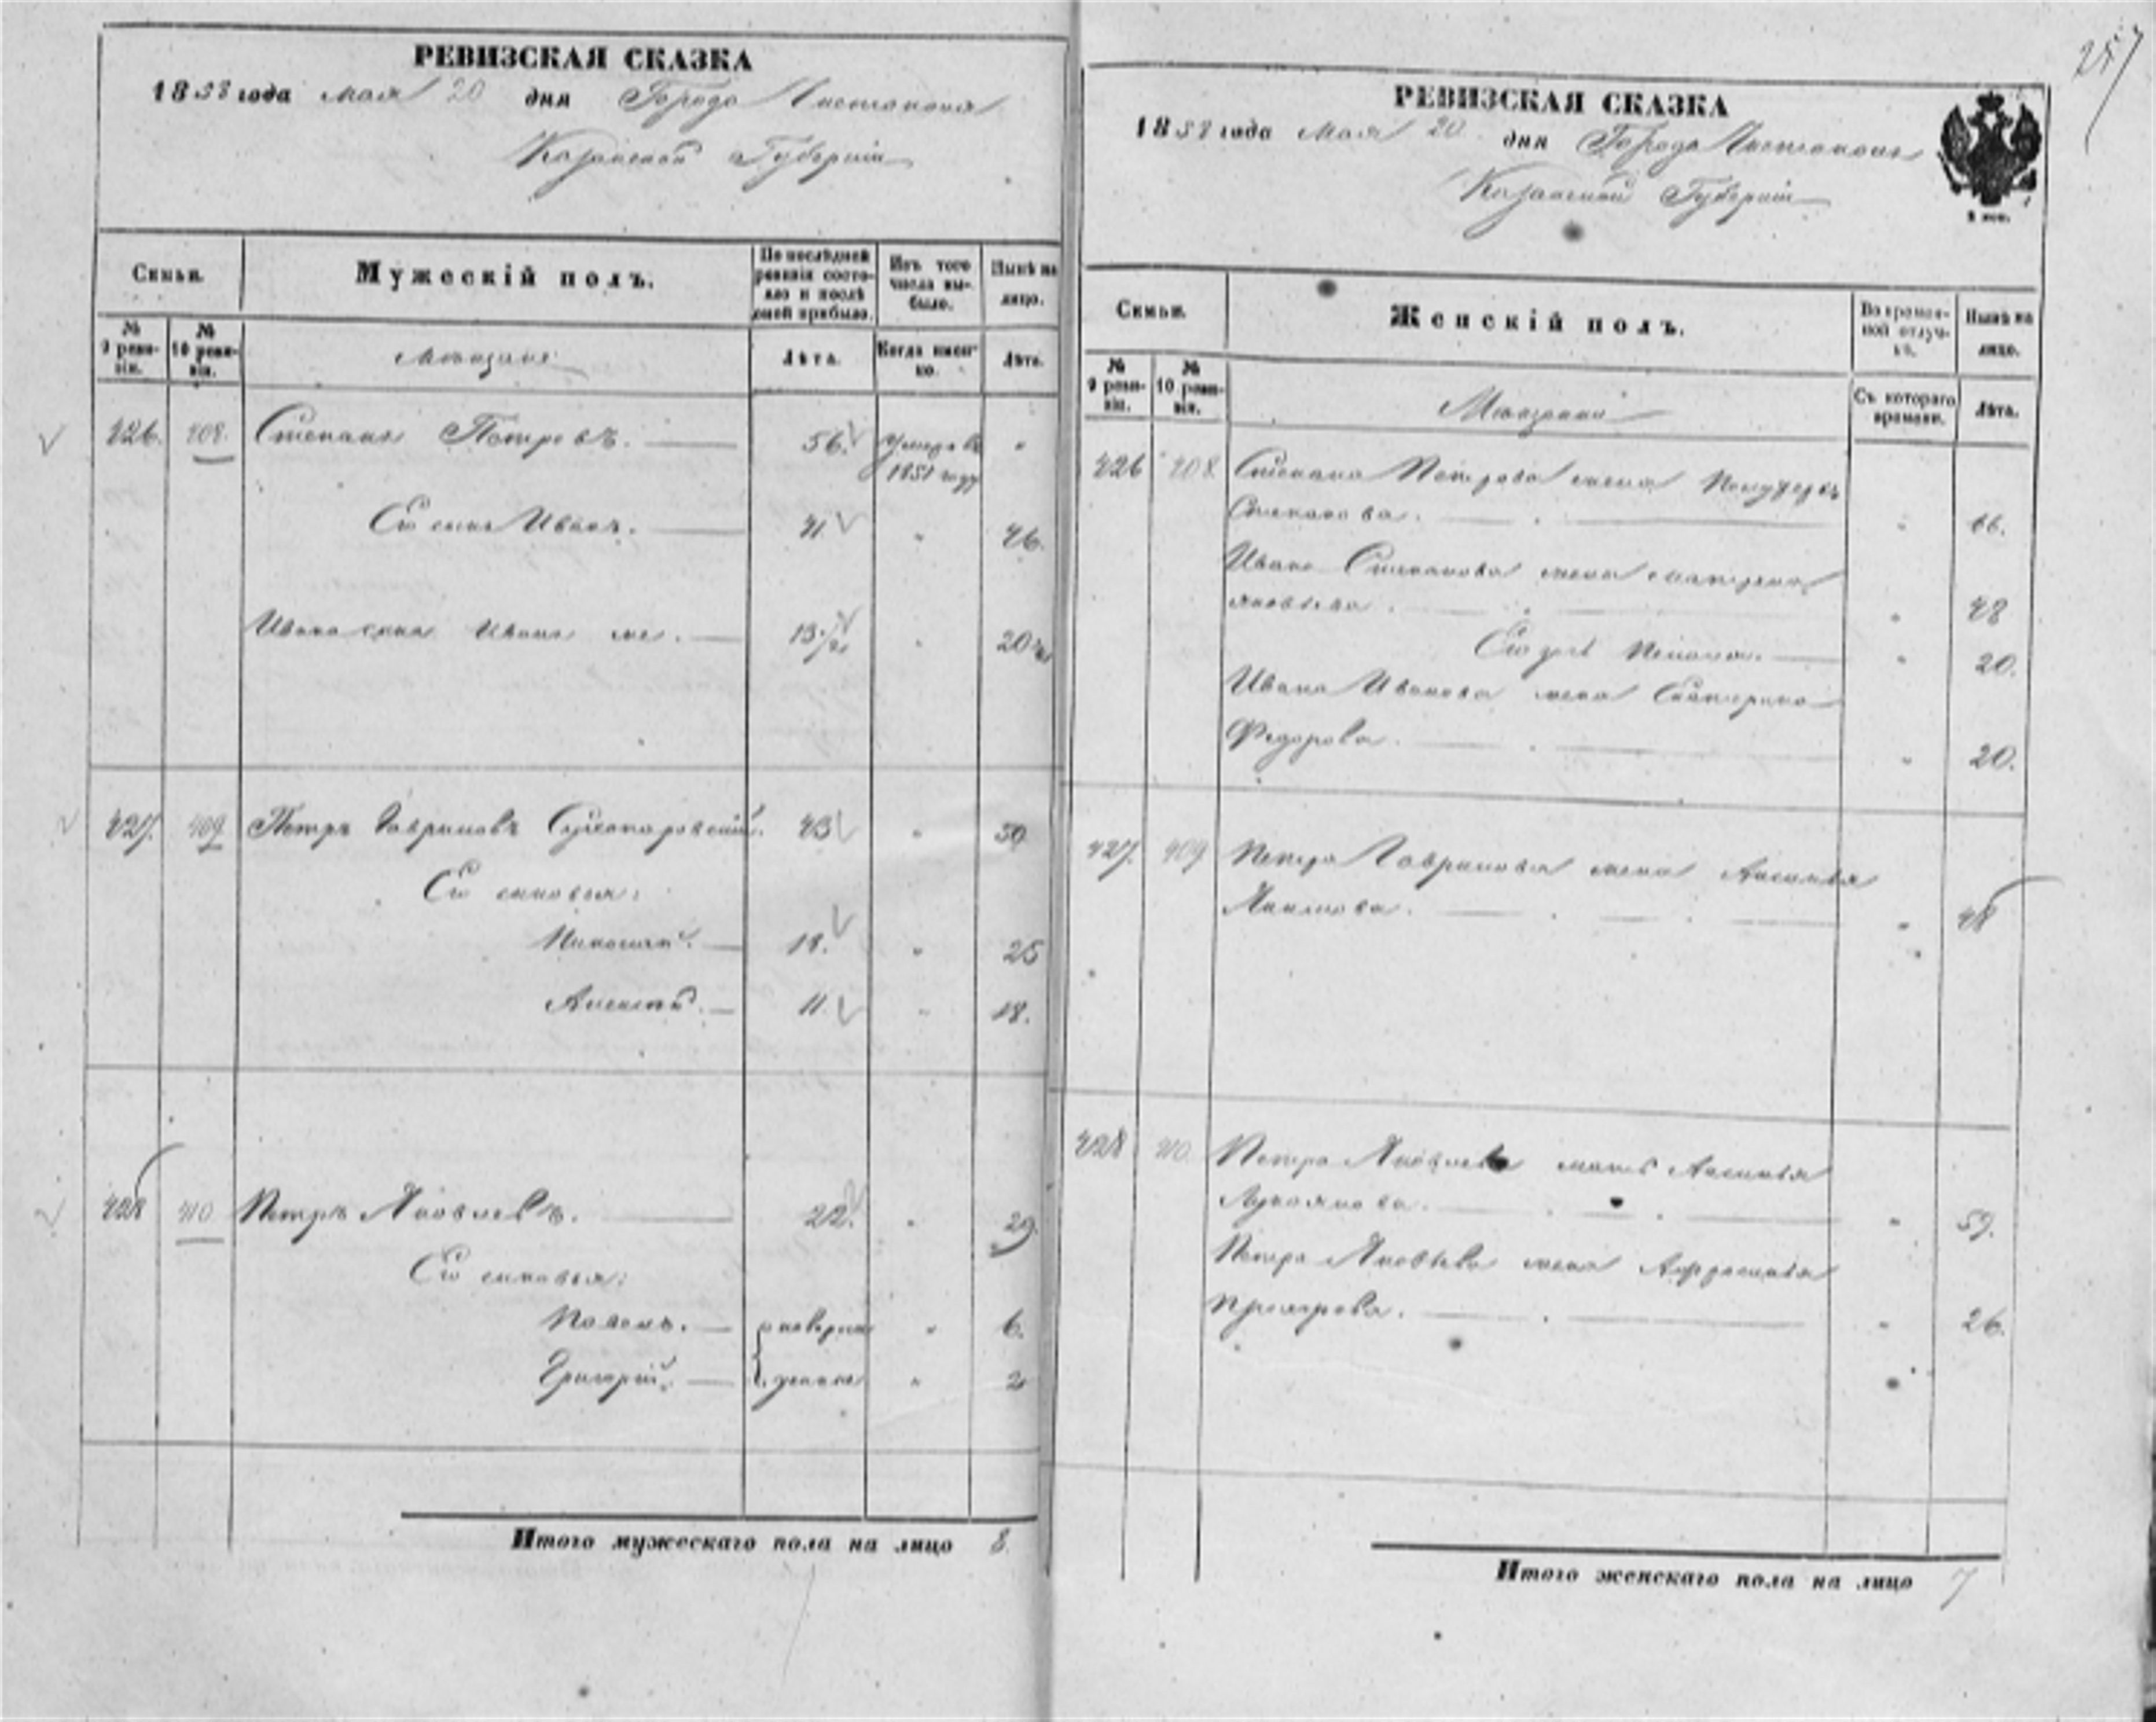 257
РЕВИЗСКАЯ СКАЗКА
1858 года Мая 20 дня Города Чистополя
Казанской Губернiи
Семьи.
Мужескiй полъ.
По последней ревизiи состояло и послѣ оной прибыло.
Изъ того числа выбыло.
Нынѣ на лицо.
№ 9 ревизiи.
№ 10 ревизiи.
Мещане
Лѣта.
Когда именно.
Лѣта.
426. 408. Степанъ Петровъ. 56. Умеръ въ 1851 году "
Его сынъ Иванъ. 41 " 46.
Ивана сынъ Иванъ же. 13 " 20
427. 409 Петръ Гавриловъ 43 " 50
Его сыновья:
Николай. 18. " 25
Алексѣй. 11. " 18.
428 410 Петръ Яковлевъ. 22. " 29.
Его сыновья:
" 6.
Григорiй. " 2
Итого мужескаго пола на лицо 8.
РЕВИЗСКАЯ СКАЗКА
1858 года Мая 20 дня Города Чистополя
Казанской Губернiи
Семьи.
Женскiй полъ.
Во временной отлучкѣ.
Нынѣ на лицо.
№ 9 ревизiи.
№ 10 ревизiи.
Мещанки
Съ котораго времени.
Лѣта.
426 408 Степана Петрова жена
Степанова. " 66.
Ивана Степанова жена Матрена
Яковлева. " 48
Его дочь " 20.
Ивана Иванова жена Екатерина
Федорова. " 20.
427. 409 Петра Гаврилова жена Аксинья
Якимова. " 48
428 410. Петра Яковлева мать Аксинья
Лукоянова. " 59.
Петра Яковлева жена Афросинья
" 26.
Итого женскаго пола на лицо 7